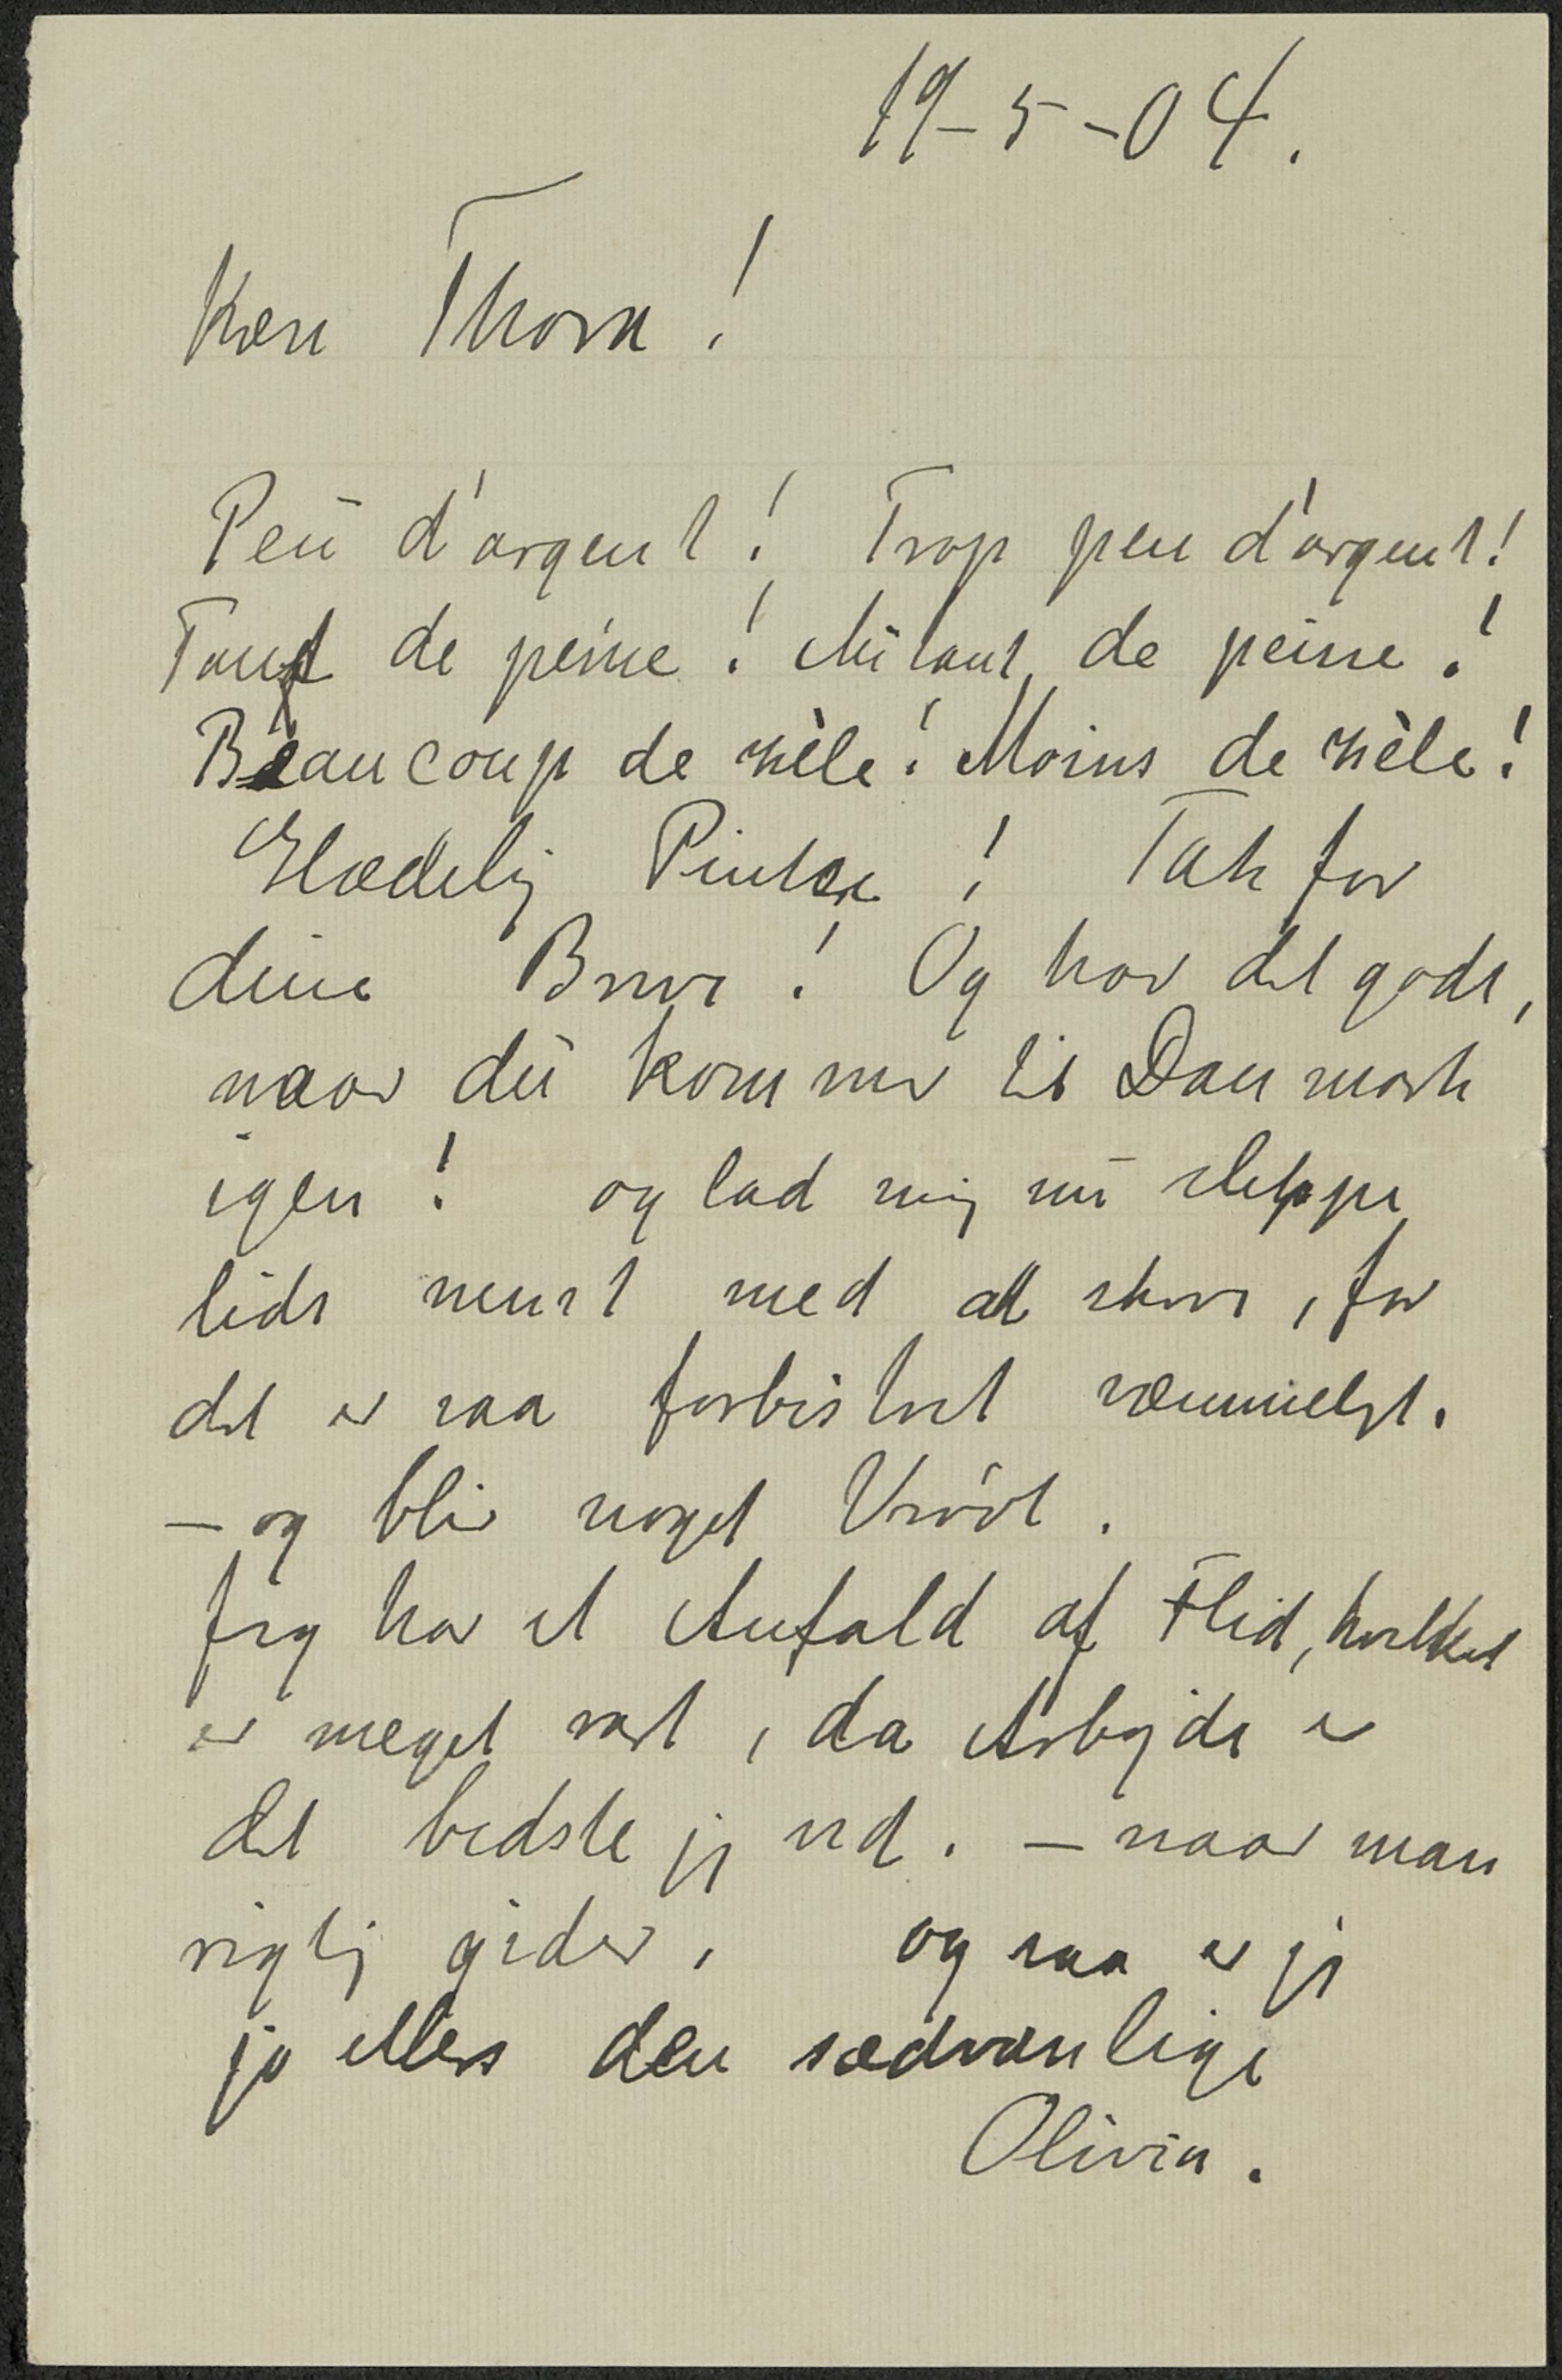 19-5-04.
Kære Thora!
Peu d'argent! Trop peu d'argent!
Tant de peine! Autant de peine!
Beaucoup de zèle! Moins de zèle!
Glædelig Pintse! Tak for
dine Breve! Og hav det godt,
naar du kommer til Danmark
igen! og lad mig nu slippe
lidt nemt med at skrive, for
det er saa forbistret væmmeligt.
- og bliv noget Vrøvl.
Jeg har et Anfald af Flid, hvilket
er meget rart, da Arbejde er
det bedste jeg ved. - naar man
rigtig gider, og saa er jeg
jo ellers den sædvanlige
Olivia.